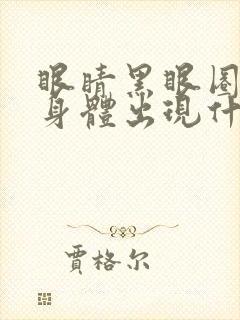 眼睛黑眼圈
身體出現什
賈格尔